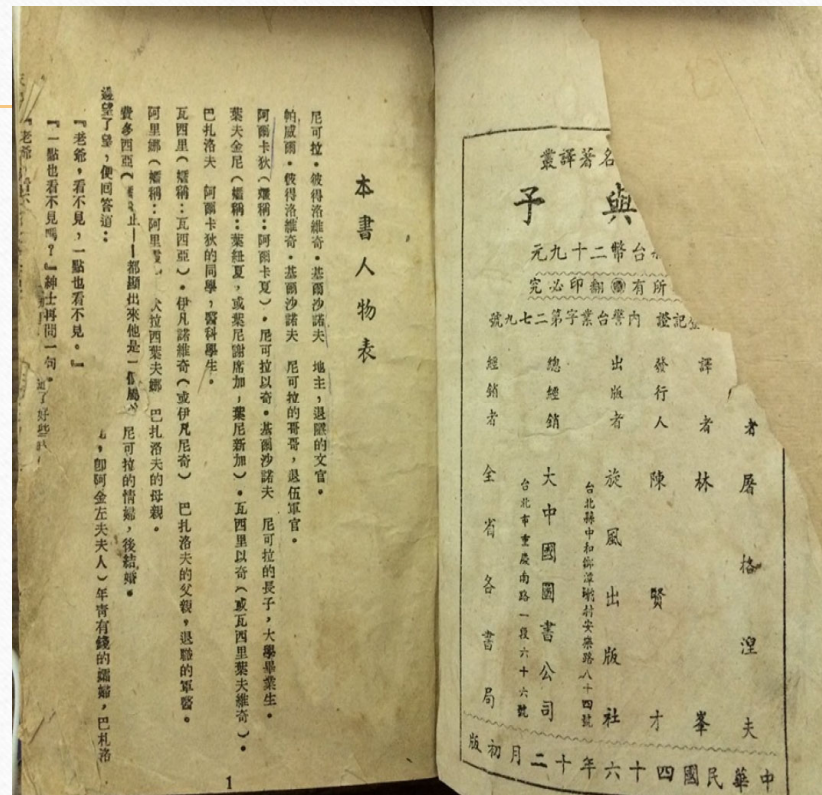 名著譯叢
與子
台幣二十九元
所有翻印必究
記證 內警台業字第二七九號
者 屠格涅夫
譯者 林峯
發行人 陳賢才
出版者 旋風出版社
台北縣中和鄉漳村安樂路八十四號
總經銷 大中國圖書公司
台北市重慶南路一段六十六號
經銷者 全省各書局
中華民國四十六年十二月初版
本書人物表
尼可拉・彼得洛維奇・基爾沙諾夫 地主,退隱的文官。
帕威爾・彼得洛維奇・基爾沙諾夫 尼可拉的哥哥,退伍軍官。
阿爾卡狄(爛稱:阿爾卡夏)・尼可拉以奇・基爾沙諾夫 尼可拉的長子,大學畢業生。
葉夫金尼(孀稱:葉紐夏,或葉尼謝席加,葉尼新加)・瓦西里以奇(或瓦西里葉夫維奇)・
巴扎洛夫 阿爾卡狄的同學,醫科學生。
瓦西里(孀稱:瓦西亞)・伊凡諾維奇(或伊凡尼奇) 巴扎洛夫的父親,退職的軍醫。
阿里娜(孀稱:阿里 拉西葉夫娜 巴扎洛夫的母親。
費多西亞( 尼可拉的情婦,後結婚。
即阿金左夫夫人)年青有錢的孀婦,巴札洛
止——都顯出來他是一個屬
遙望了望,便回答道:
『老爺,看不見,一點也看不見。』
『一點也看不見嗎?』紳士再問一句。
『老爺
過了好些
1